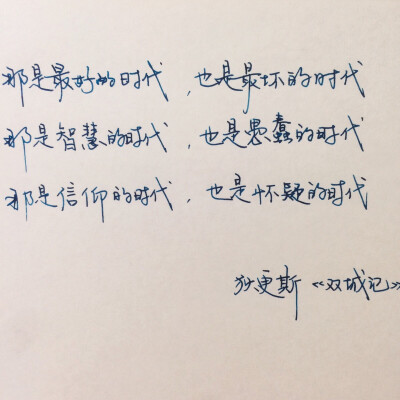 那是最好的时代，也是最坏的时代
那是智慧的时代，也是愚蠢的时代
那是信仰的时代，也是怀疑的时代
狄更斯《双城记》